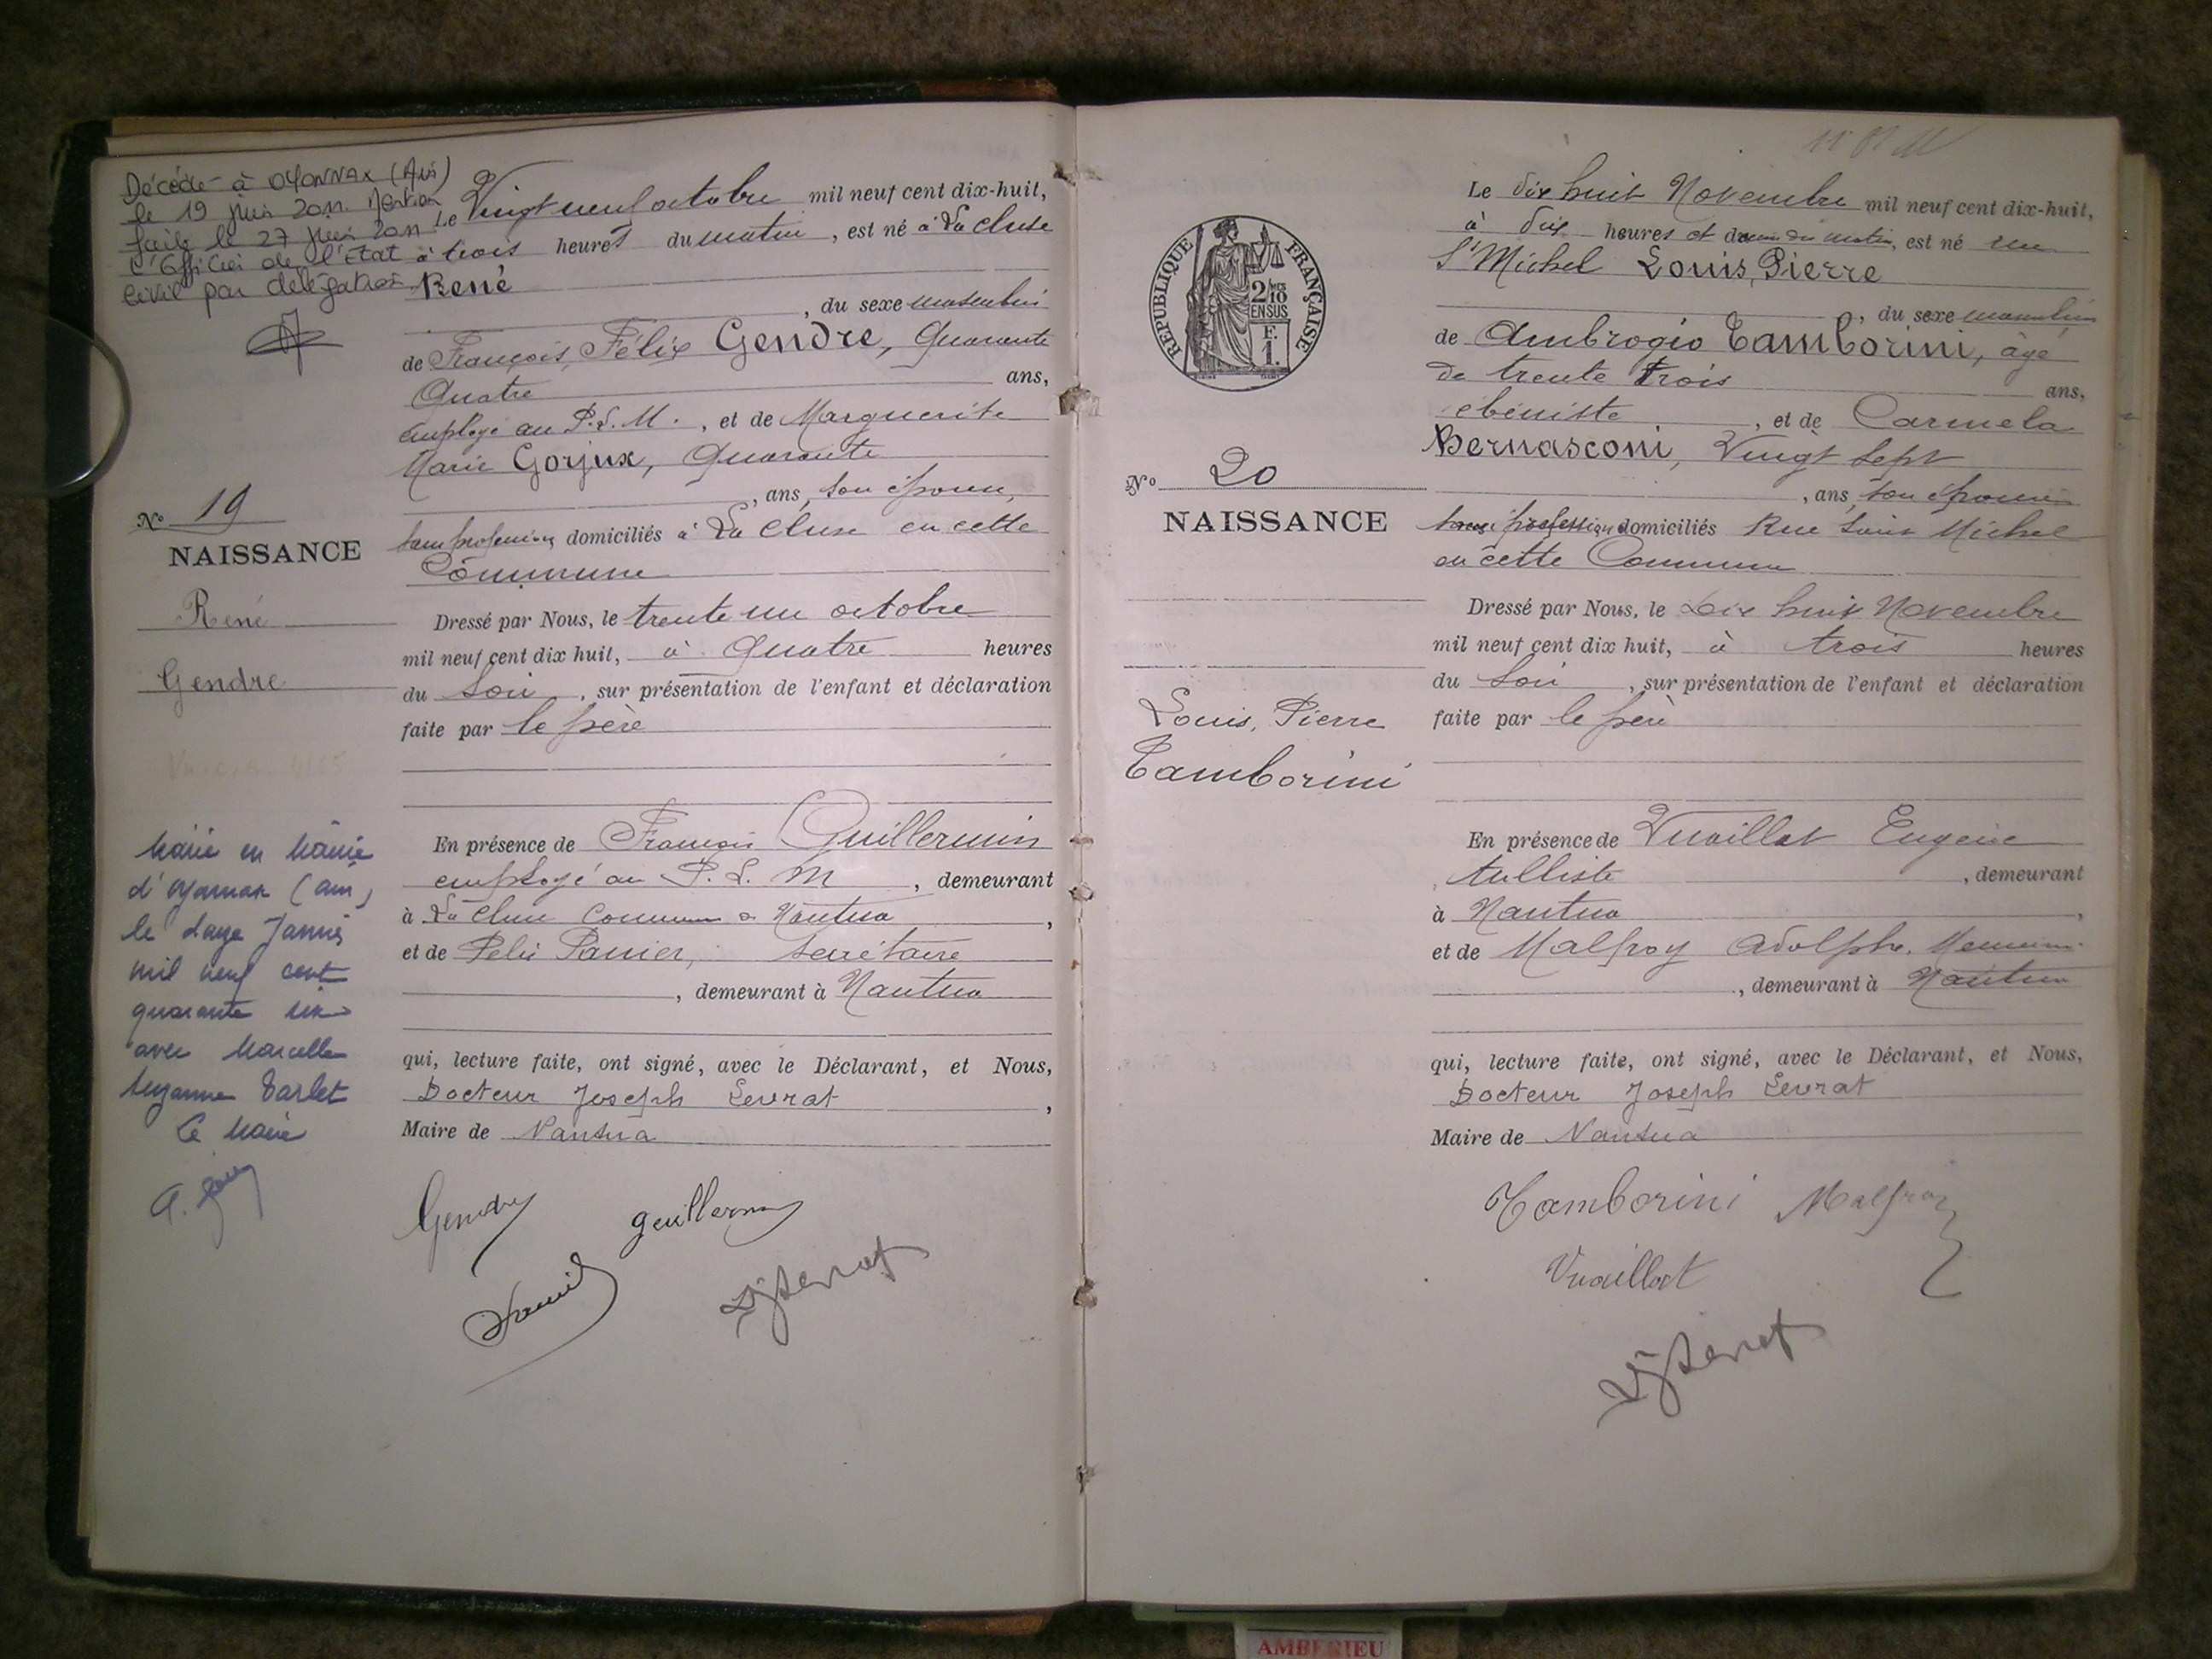 Décédé à OYONNAX (Ain)
le 19 juin 2011. Mention
faite le 27 juin 2011
L'Officier de l'Etat
Civil par délégation.
Le Vingt neuf octobre mil neuf cent dix-huit,
à trois heures du matin, est né à La Cluse
René
, du sexe masculin
de François, Félix Gendre, Quarante
Quatre ans,
employé au P.L.M., et de Marguerite
Marie Gorjux, Quarante
, ans, son épouse,
sans profession, domiciliés à La Cluse en cette
Commune
No 19
NAISSANCE
René
Gendre
Dressé par Nous, le trente un octobre
mil neuf cent dix huit, à Quatre heures
du soir, sur présentation de l'enfant et déclaration
faite par le père
En présence de François Guillermin
employé au P.L.M, demeurant
à La Cluse Commune de Nantua,
et de Félix Panier, secrétaire
, demeurant à Nantua
qui, lecture faite, ont signé, avec le Déclarant, et Nous,
Docteur Joseph Levrat,
Maire de Nantua
Marié en Mairie
d'Oyonnax (Ain)
le douze Janvier
mil neuf cent
quarante six
avec Marcelle
Suzanne Tarlet
Le Maire
Gendre Guillermin
Panier Levrat
RÉPUBLIQUE FRANÇAISE
2/10 MES
EN SUS
F.
1.
No 20
NAISSANCE
Louis, Pierre
Tamborini
Le dix huit Novembre mil neuf cent dix-huit,
à dix heures et demie du matin, est né rue
St Michel Louis, Pierre
, du sexe masculin
de Ambrogio Tamborini, âgé
de trente trois ans,
ébéniste, et de Carmela
Bernasconi, Vingt sept
, ans, son épouse
sans profession domiciliés Rue Saint Michel
en cette Commune
Dressé par Nous, le Dix huit Novembre
mil neuf cent dix huit, à trois heures
du soir, sur présentation de l'enfant et déclaration
faite par le père
En présence de Vuaillat Eugène
tulliste, demeurant
à Nantua,
et de Malfroy Adolphe,
, demeurant à Nantua
qui, lecture faite, ont signé, avec le Déclarant, et Nous,
Docteur Joseph Levrat
Maire de Nantua
Tamborini Malfroy
Vuaillat
Levrat
AMBERIEU